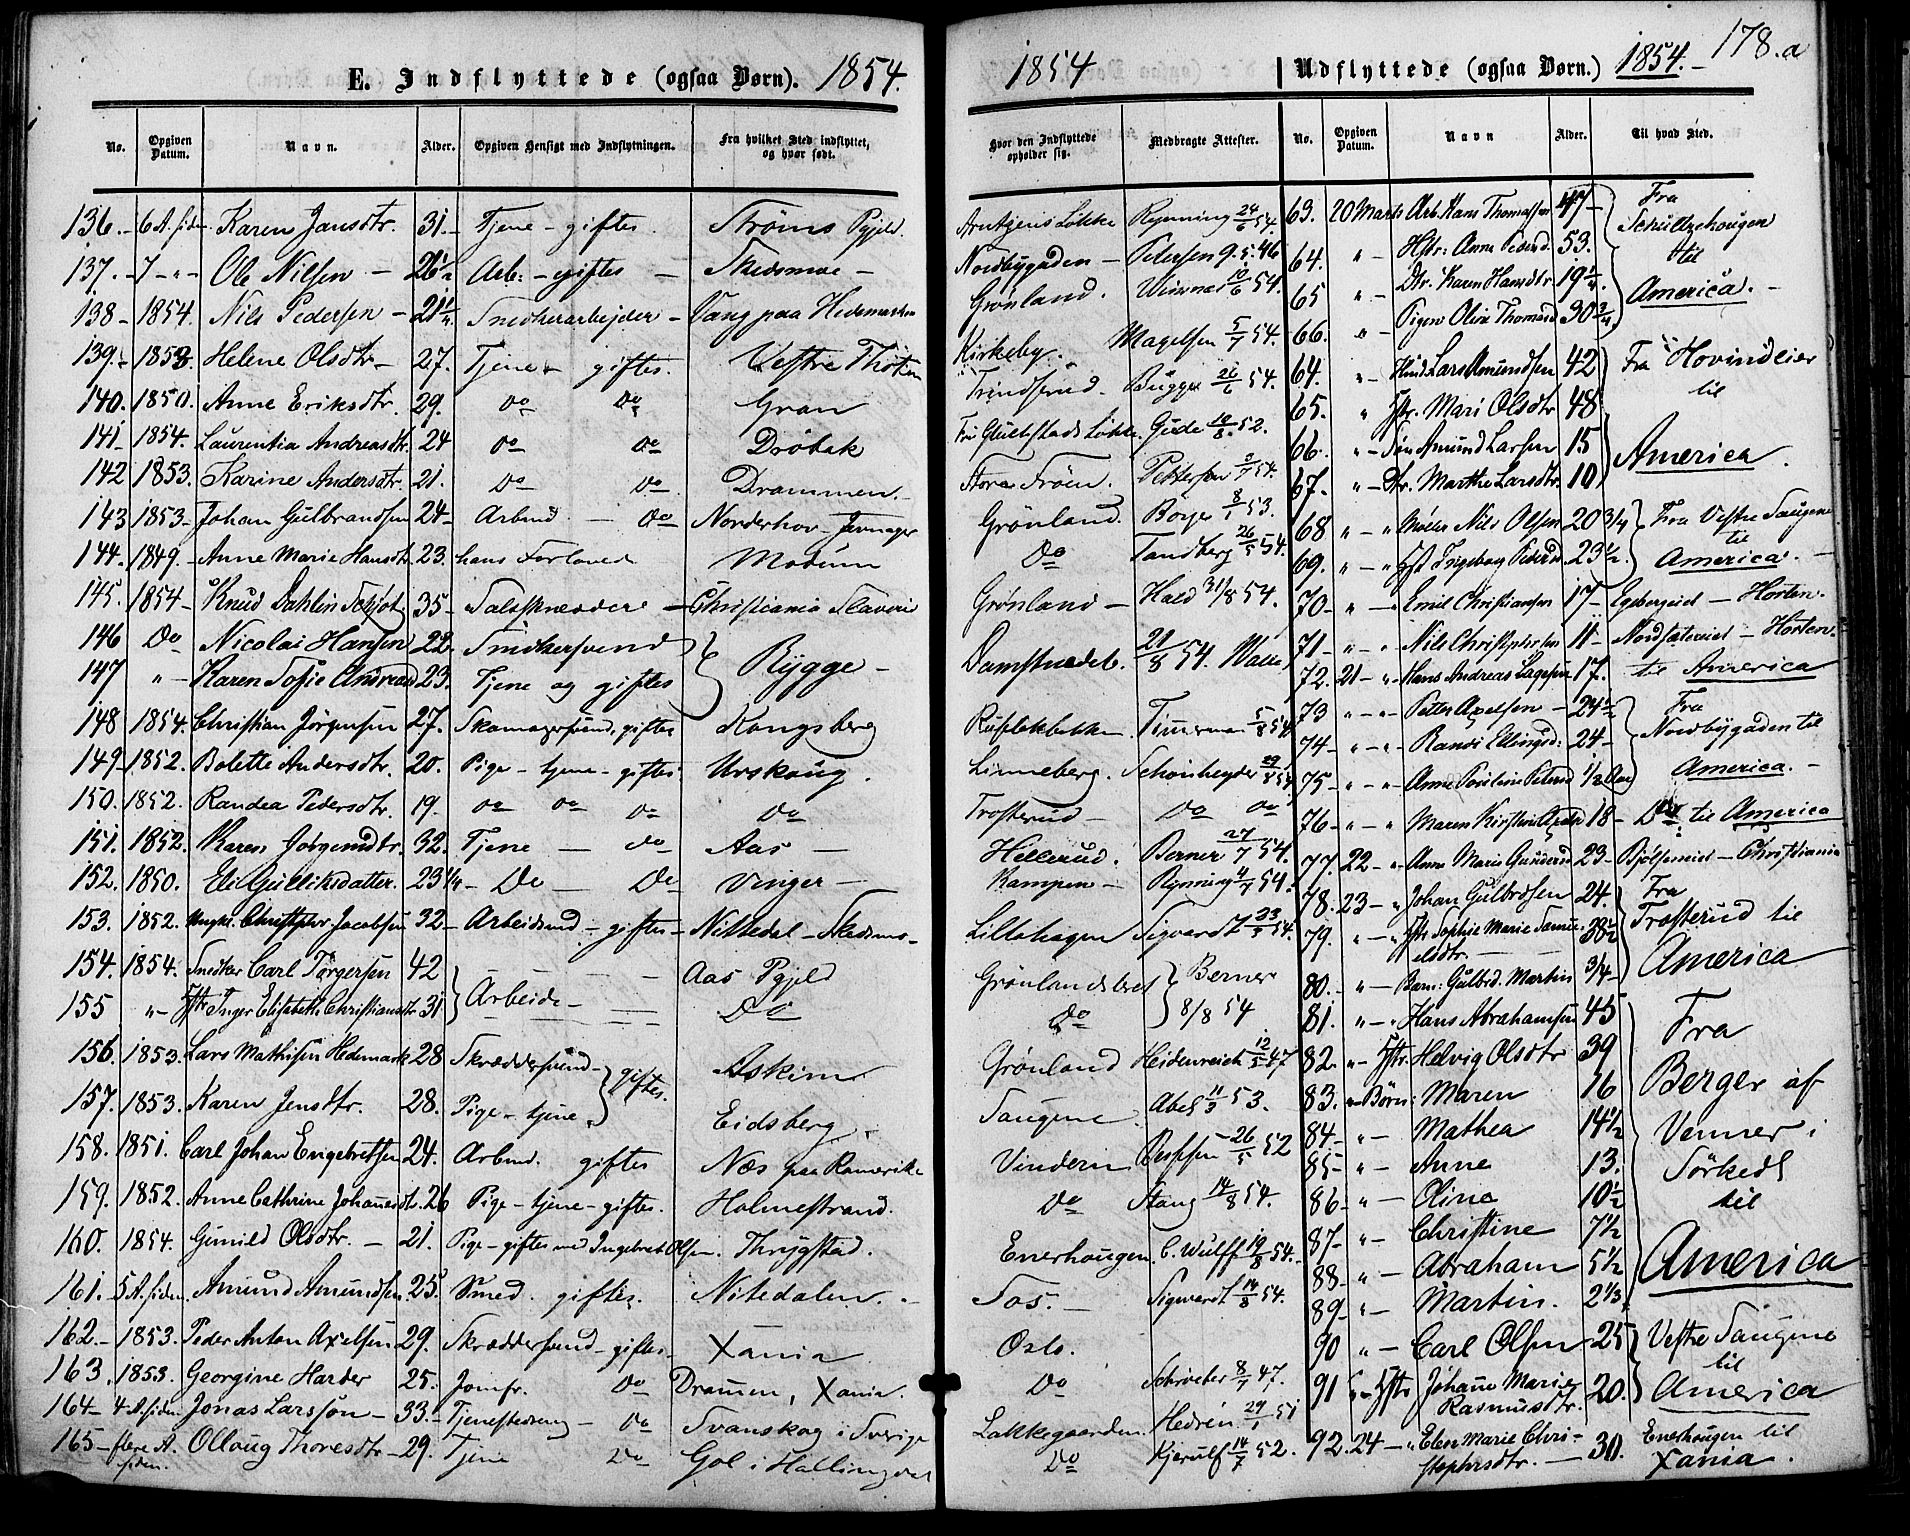 E. Indflyttede (ogsaa Børn). 1854.
No. Opgiven Datum. Navn. Alder. Opgiven Hensigt med Indflytningen. Fra hvilket Sted indflyttet, og hvor født.
136. 6 A. siden Karen Jansdtr. 31. Tjene - giftes. Strøms Pgjeld.
137. 7 " Ole Nilsen 26 1/2 Arb: - giftes Skedsmoe
138 1854. Nils Pedersen 21 1/4 Snedkerarbejder Vang paa Hedemarken
139. 1853. Helene Olsdtr 27. Tjene giftes. Vestre Thoten
140. 1850. Anne Eriksdtr. 29. Do Do Gran
141. 1854. Laurentia Andreasdtr 24 Do Do Drøbak
142 1853. Karine Andersdtr. 21. Do Do Drammen.
143 1853 Johan Gulbrandsen 24 Arbmd. Do Norderhov Jevnager
144. 1849. Anne Marie Hansdtr. 23. hans Forlovede Modum
145. 1854 Knud Dahlin Schjøt 35 Christiania Slaveri
146 Do Nicolai Hansen 22. Snedkersvend
147 " Karen Sofie Andread 23. Tjene og giftes Rygge
148 1854. Christian Jørgensen 27. Skomagersvend, giftes Kongsberg
149 1852. Bolette Andersdtr. 20. Pige - tjene - giftes. Urskoug.
150. 1852. Randea Pedersdtr. 19. Do Do Do Do
151. 1852. Karen Jørgensdtr. 32. Tjene Do Aas
152. 1850. Eli Gulliksdatter. 23 1/4 Do Do Vinger
153. 1852. Ungk. Christopher Jacobsen 32 Arbeidsmd - giftes Nittedal - Skedsmo
154. 1854. Snedker Carl Torgersen 42 Aas Pgjeld
155 " Hstr Inger Elisabeth Christiansdtr 31 Arbeide Do
156. 1853. Lars Mathisen Hedemark 28 Skræddersvend Askim
157. 1853. Karen Jensdtr. 28. Pige - tjene giftes. Eidsberg
158. 1851. Carl Johan Engebretsen 24. Arbmd. giftes Næs paa Romerike
159. 1852. Anne Cathrine Johannesdtr. 26 Pige - tjene - giftes. Holmestrand.
160. 1854. Gunild Olsdtr. 21. Pige - giftes med Ingebret Olsen. Thrygstad.
161. 5 A. siden. Amund Amundsen 25. Smed. giftes. Nitedalen.
162. 1853. Peder Anton Axelsen 29. Skræddersvend - giftes Xania
163. 1853. Georgine Harder 25. Jomfr. Do Drammen, Xania.
164 4 A. siden Jonas Larsson 33. Tjenestedreng Do Svanskog i Sverige
165 flere A. siden. Olloug Thoresdtr 29. Tjene Do Gol i Hallingdal
1854 Udflyttede (ogsaa Børn.) 1854. 178.a
Hvor den Indflyttede opholder sig. Medbragte Attester. No. Opgiven Datum. Navn Alder. Til hvad Sted.
Arntzens Løkke Rynning 24/6 54. 63. 20 Marts Arb. Hans Thomassen 47 Fra
Nordbygaden Petersen 9.5.46 64. " Hstr: Anne Pedersd. 53. Schultzehougen
Grønland. 10/6 54. 65 " Dtr. Karen Hansdtr 19 1/4. til
Kirkeby. Magelsen 5/7 54. 66. " Pigen Oline Thomasd 30 3/4 America.
Bugge 26/6 54. 64. " Husmd Lars Amundsen 42 Fra Hovindeier
Fru Gluckstads Løkke. Gude 10/8. 52. 65. " Hstr. Mari Olsdtr 48 til
Store Frøen. Pettersen 3/7 54. 66. " Søn Amund Larsen 15 America.
67. " Dtr. Marthe Larsdtr. 10
Grönland. Borge 8/1 53. 68 " " Møller Nils Olsen 20 3/4 Fra Vestre Saugene til
Do Tandberg 26/5 54. 69. " " Hst Ingeborg Pedersd 23 1/2. America.
Grønland Hald 31/8 54. 70 " Emil Christiansen 17 Egebergeiet - Horten.
Damstrædet. 21/8 54. 71 " " Nils Christophersen 11 Nordsætereiet - Horten.
72. 21 " Hans Andreas Lagesen 17. til America
5/8 54 73 " " Petter Axelsen 24 1/2 Fra
Linneberg. Schönheyder 29/8 54 74 " " Randi Ellingsd: 24 Nordbygaden til
75 " " Anne Pouline Petersd 1/2 Aar America.
Trosterud Do Do 76 " " Maren Kirstine Axelsd 18 Do til America
Hellerud. Berner 27/7 54. 77. 22 " Anne Marie Gundersd 23 Bjølseneiet - Christiania
Kampen Rynning 4/7 54. 78. 23 " Johan Gulbrdsen 24. Fra
Lillehagen Sigvardt 23/5 54. 79. " " Hstr Sophie Marie Samuelsdtr. 38 1/2 Trosterud til
Grønlandsleret Berner 80. " Barn: Gulbrd. Martin 3/4 America
Do 8/8 54 81. " " Hans Abrahamsen 45 Fra
Grønland Heidenreich 12/5 47 82. " Hstr. Helvig Olsdtr 39 Berger af
Saugene Abel 11/3 53. 83. " Børn: Maren 16 Venner i
Vindern 26/5 52 84. " Mathea 14 1/2 Sörkedl
85 " Anne 13. til
Do Stang 14/8 54. 86 " Oline 10 1/2 America
Enerhougen. C. Wulff 19/8 54. 87 " Christine 7 1/2
88 " Abraham 5 1/2
Sos. Sigwardt 14/8 54. 89 " Martin. 2 1/3.
Oslo. 90 " Carl Olsen 25 Vestre Saugene
Do Schröeter 8/7 47. 91 " Hstr Johanne Marie Rasmusdtr. 20. til America
Lakkegaarden Hedrén 29/1 51
Do Kjerulf 14/7 52. 92. 24 " Elen Marie Christophersdtr. 30. Enerhougen til Xania.